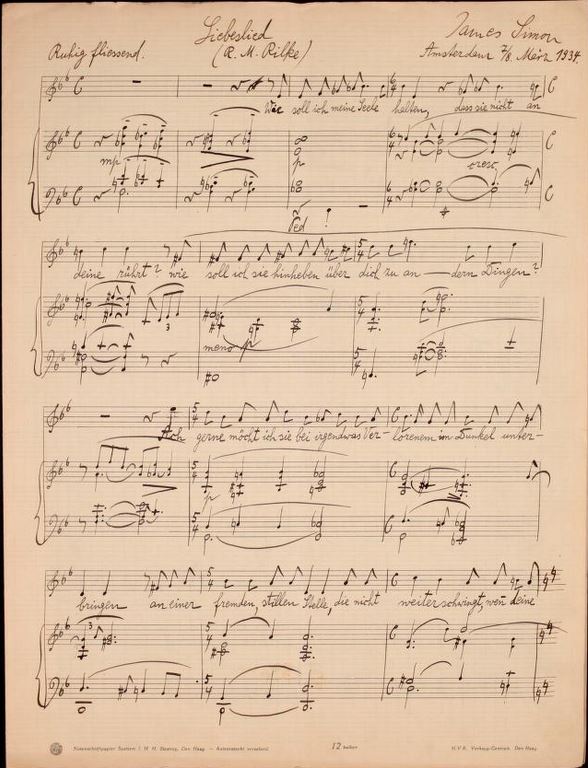 Liebeslied
(R. M. Rilke)
James Simon
Ruhig fliessend.
Amsterdam 7/8. März 1934.
Wie soll ich meine Seele halten, dass sie nicht an
mp
p
cresc.
Ped
deine rührt? wie soll ich sie hinheben über dich zu an - dern Dingen?
meno p
Ach gerne möcht ich sie bei irgendwas Ver- lorenem im Dunkel unter-
p
bringen an einer fremden, stillen Stelle, die nicht weiterschwingt, wenn deine
12
Den Haag